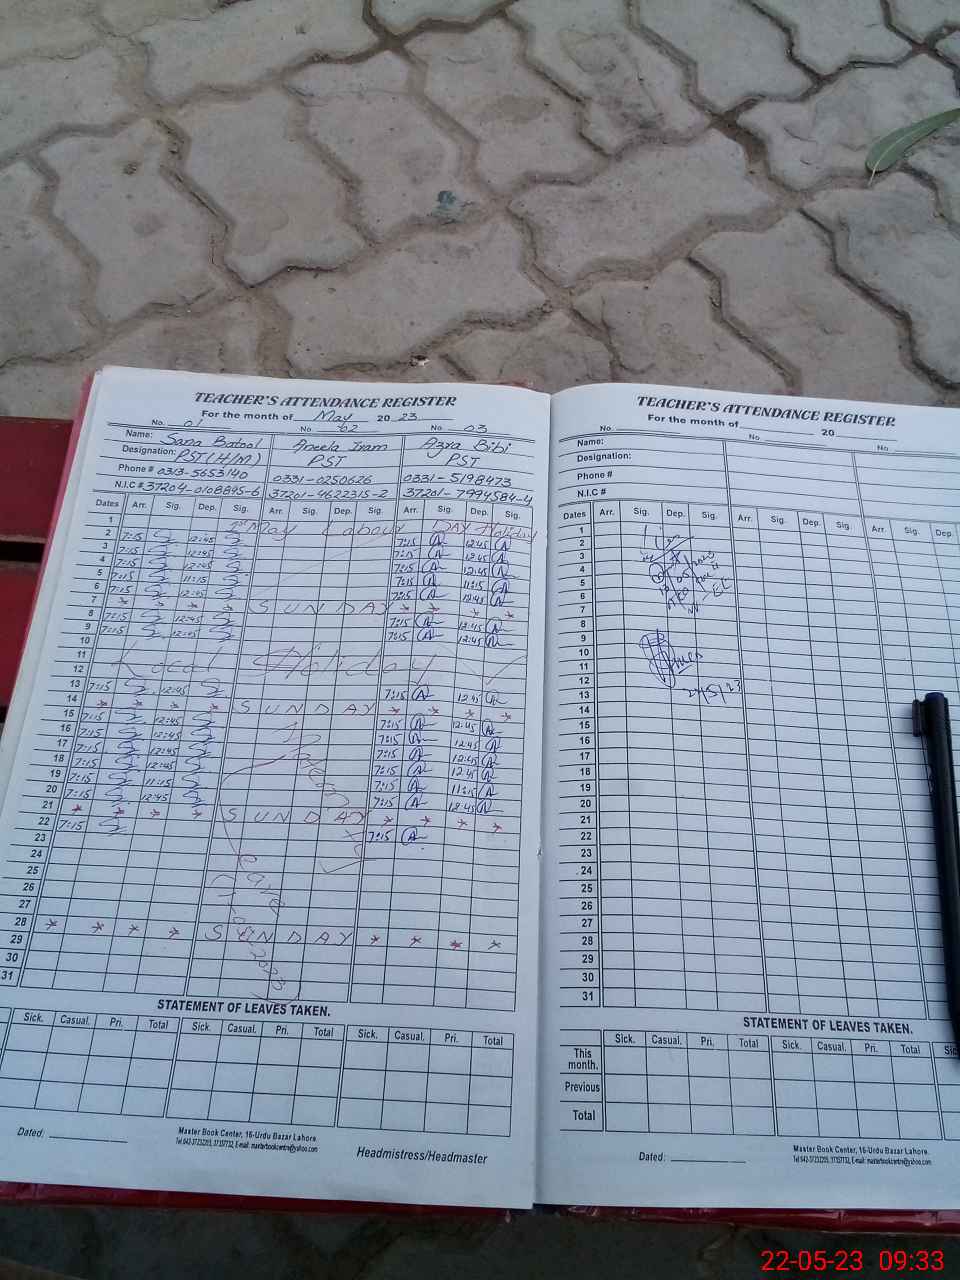 TEACHER'S ATTENDANCE REGISTER
For the month of May 20 23
No. 01 No 02 No. 03
Name: Sana Batool Aneela Iram Azra Bibi
Designation: PST(H/M) PST PST
Phone # 0313-5653140 0331-0250626 0331-5198473
N.I.C # 37204-0108895-6 37201-4622315-2 37201-7994584-4
Dates Arr. Sig. Dep. Sig. Arr. Sig. Dep. Sig. Arr. Sig. Dep. Sig.
1 1st May Labour DAY Holiday
2 7:15 12:45 7:15 12:45
3 7:15 12:45 7:15 12:45
4 7:15 12:45 7:15 12:45
5 7:15 11:15 7:15 11:15
6 7:15 12:45 7:15 12:45
7 * * * * SUNDAY * * * *
8 7:15 12:45 7:15 12:45
9 7:15 12:45 7:15 12:45
10
11 Local Holiday
12
13 7:15 12:45 7:15 12:45
14 * * * * SUNDAY * * * *
15 7:15 12:45 7:15 12:45
16 7:15 12:45 7:15 12:45
17 7:15 12:45 7:15 12:45
18 7:15 12:45 7:15 12:45
19 7:15 11:15 7:15 11:15
20 7:15 12:45 7:15 12:45
21 * * * * SUNDAY * * * *
22 7:15 7:15
23
24
25
26
27
28 * * * * SUNDAY * * * *
29
30
31
STATEMENT OF LEAVES TAKEN.
Sick. Casual. Pri. Total Sick. Casual. Pri. Total Sick. Casual. Pri. Total
Dated:
Master Book Center, 16-Urdu Bazar Lahore.
Headmistress/Headmaster
TEACHER'S ATTENDANCE REGISTER
For the month of 20
No. No No.
Name:
Designation:
Phone #
N.I.C #
Dates Arr. Sig. Dep. Sig. Arr. Sig. Dep. Sig. Arr. Sig. Dep.
1
2
3
4
5
6
7
8
9
10
11
12
13 24/5/23
14
15
16
17
18
19
20
21
22
23
24
25
26
27
28
29
30
31
STATEMENT OF LEAVES TAKEN.
Sick. Casual. Pri. Total Sick. Casual. Pri. Total
This month.
Previous
Total
Dated:
Master Book Center, 16-Urdu Bazar Lahore.
22-05-23 09:33